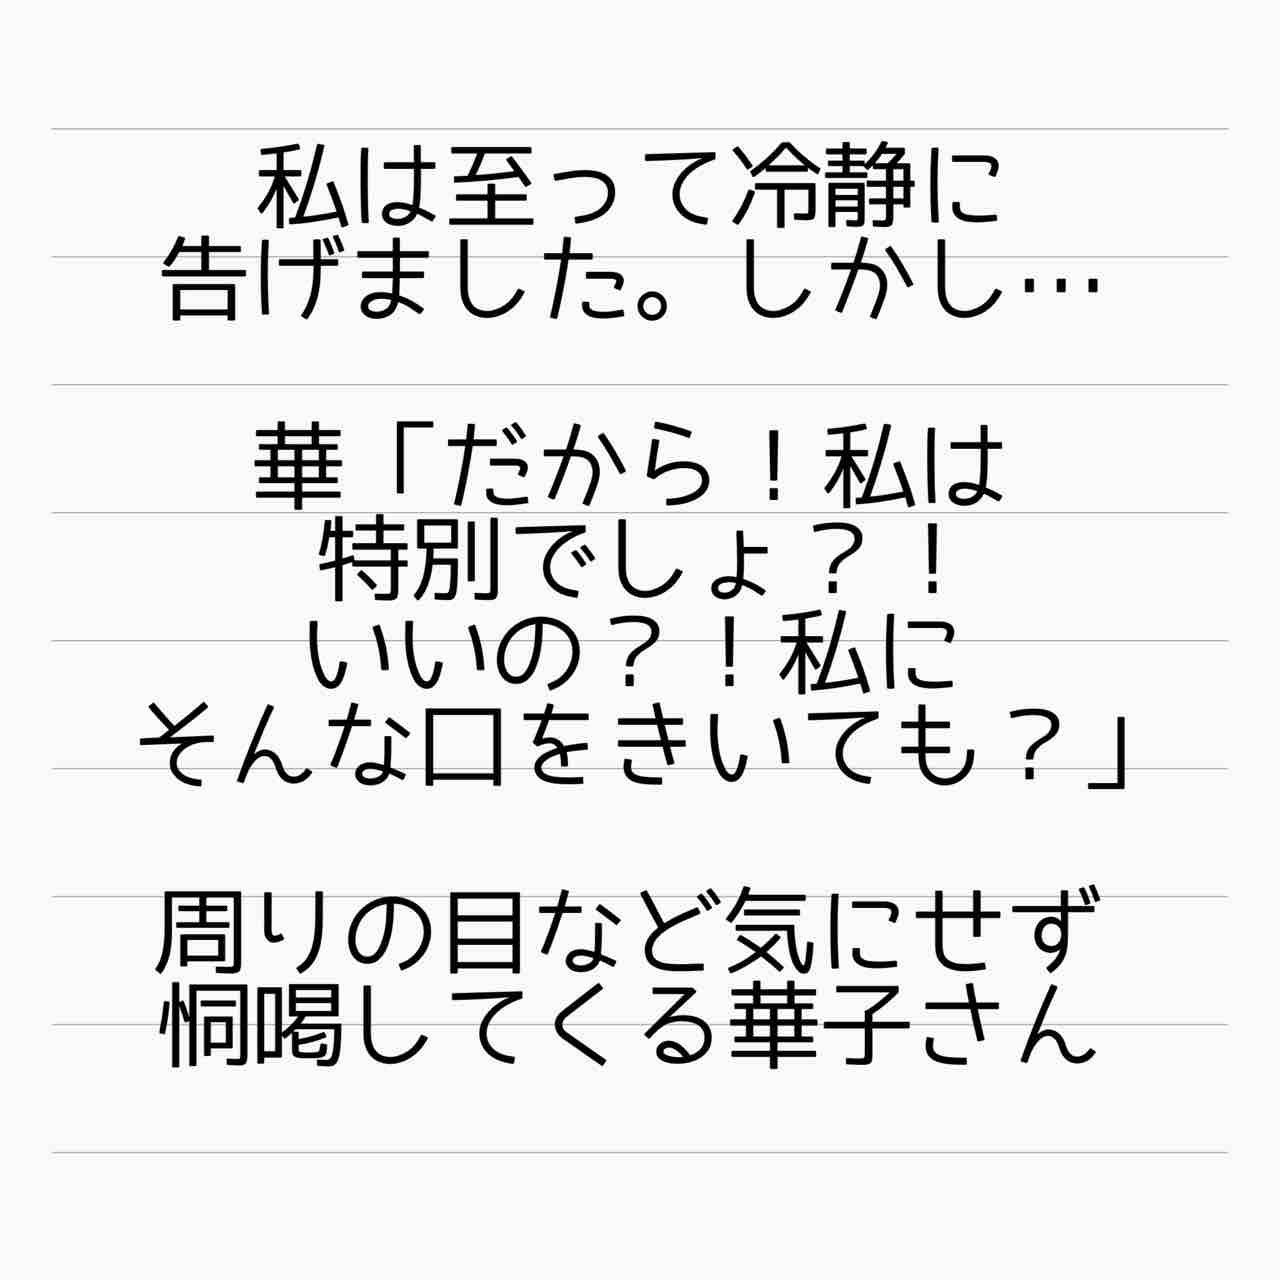 私は至って冷静に
告げました。しかし…
華「だから！私は
特別でしょ？！
いいの？！私に
そんな口をきいても？」
周りの目など気にせず
恫喝してくる華子さん